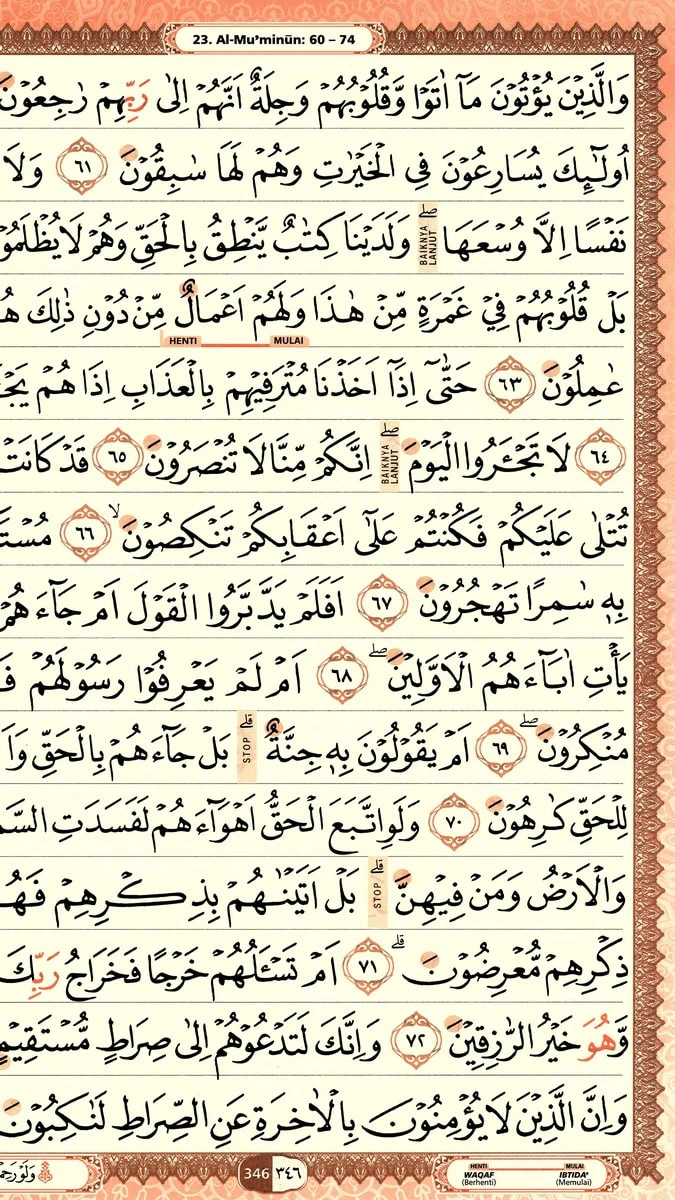 23. Al-Mu’minūn: 60 – 74
وَالَّذِيْنَ يُؤْتُوْنَ مَآ اٰتَوْا وَّقُلُوْبُهُمْ وَجِلَةٌ اَنَّهُمْ اِلٰى رَبِّهِمْ رٰجِعُوْنَ
اُولٰۤىِٕكَ يُسَارِعُوْنَ فِى الْخَيْرٰتِ وَهُمْ لَهَا سٰبِقُوْنَ ٦١ وَلَا
نَفْسًا اِلَّا وُسْعَهَاۖ BAIKNYA LANJUT وَلَدَيْنَا كِتٰبٌ يَّنْطِقُ بِالْحَقِّ وَهُمْ لَا يُظْلَمُوْ
بَلْ قُلُوْبُهُمْ فِيْ غَمْرَةٍ مِّنْ هٰذَا وَلَهُمْ اَعْمَالٌ مِّنْ دُوْنِ ذٰلِكَ هُ
MULAI HENTI
عٰمِلُوْنَ ٦٣ حَتّٰىٓ اِذَآ اَخَذْنَا مُتْرَفِيْهِمْ بِالْعَذَابِ اِذَا هُمْ يَجْـَٔ
٦٤ لَا تَجْـَٔرُوا الْيَوْمَۖ BAIKNYA LANJUT اِنَّكُمْ مِّنَّا لَا تُنْصَرُوْنَ ٦٥ قَدْ كَانَتْ
تُتْلٰى عَلَيْكُمْ فَكُنْتُمْ عَلٰٓى اَعْقَابِكُمْ تَنْكِصُوْنَۙ ٦٦ مُسْتَ
بِهٖ سٰمِرًا تَهْجُرُوْنَ ٦٧ اَفَلَمْ يَدَّبَّرُوا الْقَوْلَ اَمْ جَاۤءَهُمْ
يَأْتِ اٰبَاۤءَهُمُ الْاَوَّلِيْنَۖ ٦٨ اَمْ لَمْ يَعْرِفُوْا رَسُوْلَهُمْ فَ
مُنْكِرُوْنَۖ ٦٩ اَمْ يَقُوْلُوْنَ بِهٖ جِنَّةٌۗ STOP بَلْ جَاۤءَهُمْ بِالْحَقِّ وَاَ
لِلْحَقِّ كٰرِهُوْنَ ٧٠ وَلَوِ اتَّبَعَ الْحَقُّ اَهْوَاۤءَهُمْ لَفَسَدَتِ السَّمٰ
وَالْاَرْضُ وَمَنْ فِيْهِنَّۗ STOP بَلْ اَتَيْنٰهُمْ بِذِكْرِهِمْ فَهُ
ذِكْرِهِمْ مُّعْرِضُوْنَۗ ٧١ اَمْ تَسْـَٔلُهُمْ خَرْجًا فَخَرَاجُ رَبِّكَ
وَّهُوَ خَيْرُ الرّٰزِقِيْنَ ٧٢ وَاِنَّكَ لَتَدْعُوْهُمْ اِلٰى صِرَاطٍ مُّسْتَقِيْمٍ
وَاِنَّ الَّذِيْنَ لَا يُؤْمِنُوْنَ بِالْاٰخِرَةِ عَنِ الصِّرَاطِ لَنٰكِبُوْنَ
HENTI MULAI
WAQAF (Berhenti) IBTIDA' (Memulai)
346 ٣٤٦
وَلَوْ رَحِمْ